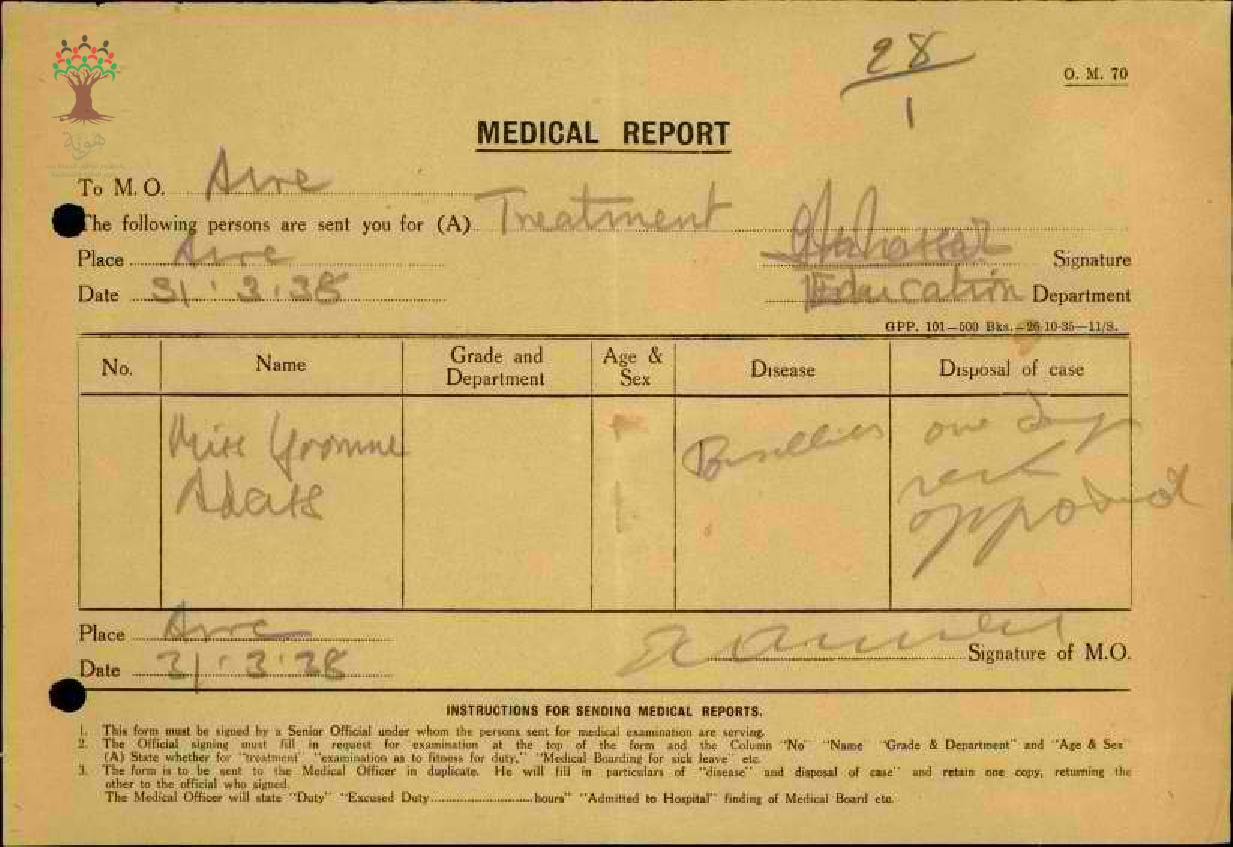 28
1
O. M. 70
هوية
MEDICAL REPORT
To M. O. Acre
The following persons are sent you for (A) Treatment
Place Acre Signature
Date 31.3.38 Education Department
GPP. 101—500 Bks.—26-10-35—11/S.
No. Name Grade and Department Age & Sex Disease Disposal of case
Miss Yvonne one day
rest
Place Acre
Date 31.3.38 Signature of M.O.
INSTRUCTIONS FOR SENDING MEDICAL REPORTS.
1. This form must be signed by a Senior Official under whom the persons sent for medical examination are serving.
2. The Official signing must fill in request for examination at the top of the form and the Column "No" "Name "Grade & Department" and "Age & Sex"
(A) State whether for "treatment" "examination as to fitness for duty," "Medical Boarding for sick leave" etc.
3. The form is to be sent to the Medical Officer in duplicate. He will fill in particulars of "disease" and disposal of case" and retain one copy, returning the
other to the official who signed.
The Medical Officer will state "Duty" "Excused Duty..............................hours" "Admitted to Hospital" finding of Medical Board etc.